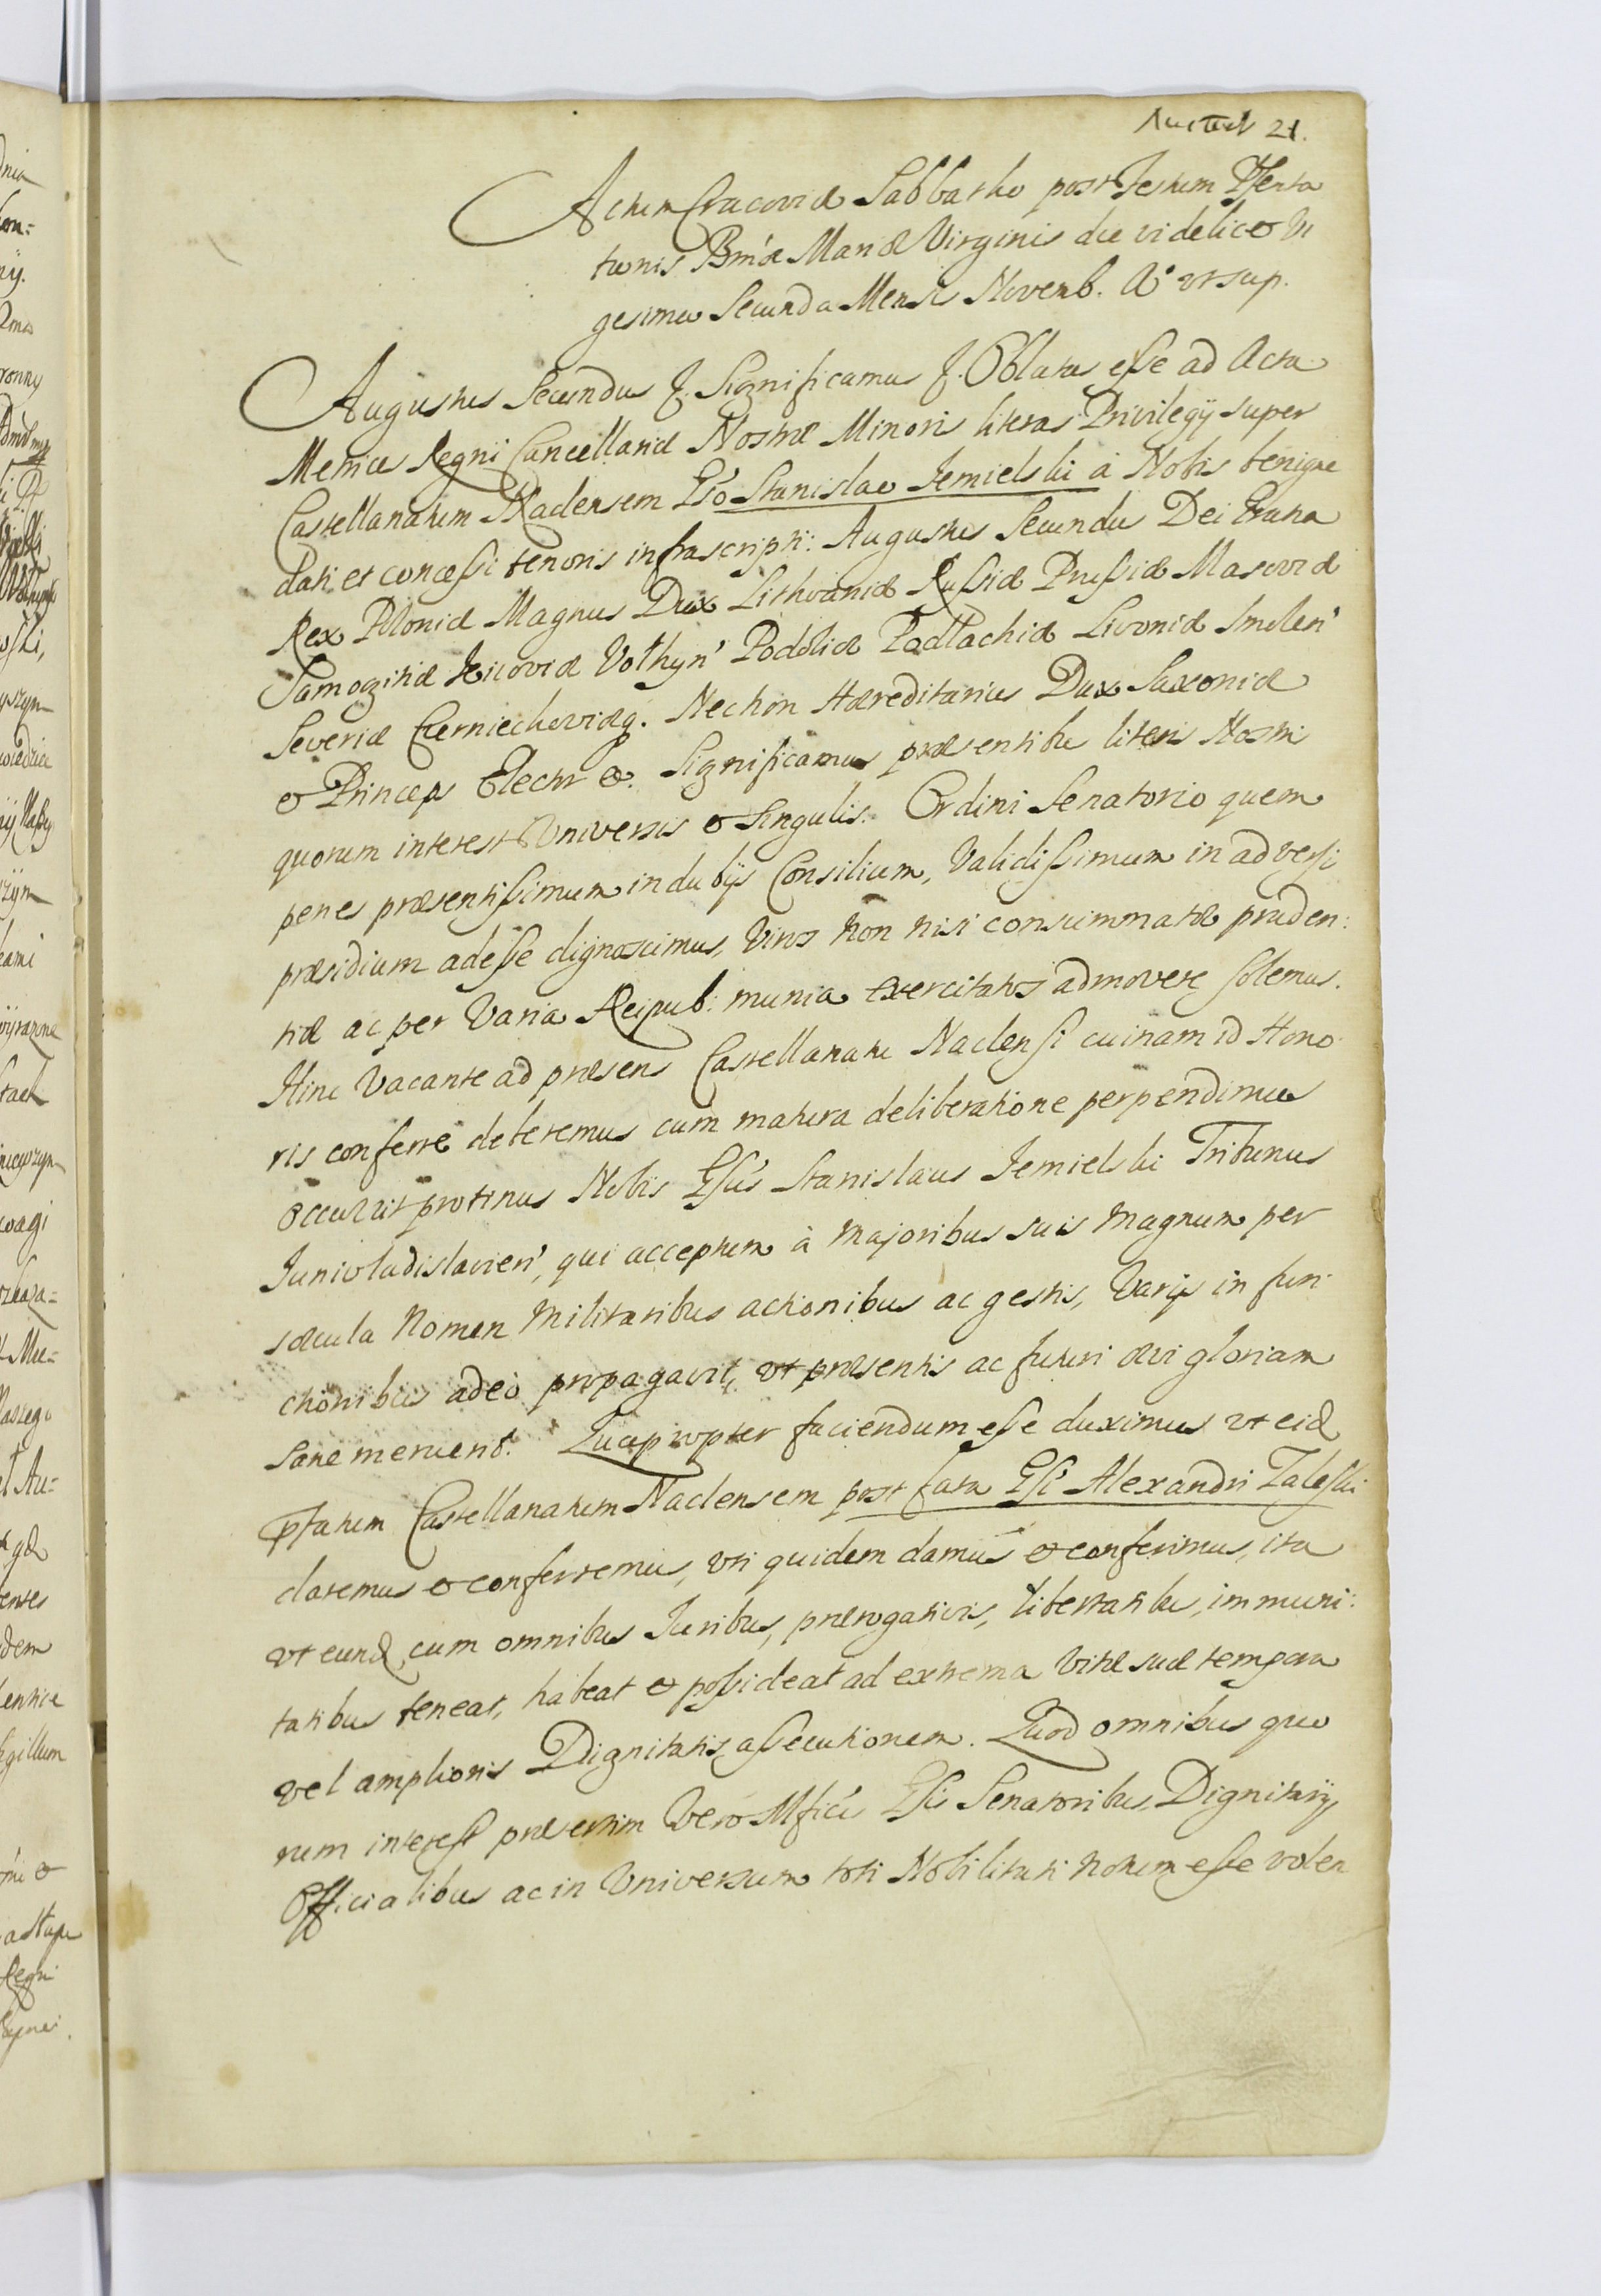 21.
Actum Cracoviæ Sabbatho post Festum Præsenta
tionis Bmæ Mariæ Virginis die videlicet Vi
gesima Secunda Mensis Novemb. Aº ut sup.
Augustus Secundus &. Significamus &. Oblatas esse ad Acta
Metrices Regni Cancellariæ Nostræ Minoris literas Privilegij super
Castellanatum Naclensem Gso Stanislao Jemielski à Nobis benigne
dati et concessi tenoris infrascripti: Augustus Secundus Dei Gratia
Rex Poloniæ Magnus Dux Lithvaniæ Russiæ Prussiæ Masoviæ
Samogitiæ Kijoviæ Volhyn' Podoliæ Podlachiæ Livoniæ Smolen'
Severiæ Czerniechoviæq. Necnon Hæreditarius Dux Saxoniæ
& Princeps Elector &. Significamus præsentibus literis Nostris
quorum interest Universis & Singulis. Ordini Senatorio quem
penes præsentissimum in dubijs Consilium, Validissimum in adversis
præsidium adesse dignoscimus, Viros non nisi consummatæ pruden:
tiæ ac per Varia Reipub: munia exercitatos admovere solemus.
Hinc Vacante ad præsens Castellanatu Naclensi cuinam id Hono
ris conferre deberemus cum matura deliberatione perpendimus
Occurrit protinus Nobis Gsus Stanislaus Jemielski Tribunus
Junivladislavien', qui acceptum à Majoribus suis Magnum per
sæcula Nomen Militaribus actionibus ac gestis, Varijs in fun:
ctionibus adeò propagavit, ut præsentis ac futuri ævi gloriam
sane meruerit. Quapropter faciendum esse duximus ut eid
ptatum Castellanatum Naclensem post fata Gsi Alexandri Zaleski
daremus & conferremus, uti quidem damus & conferimus, ita
ut eund cum omnibus Juribus, prærogativis, libertatibus, immuni:
tatibus teneat, habeat & possideat ad extrema Vitæ suæ tempora
vel amplioris Dignitatis assecutionem. Quod omnibus quo
rum interest præsertim Vero Mficis Gsis Senatoribus, Dignitarijs,
Officialibus ac in Universum toti Nobilitati notum esse volen